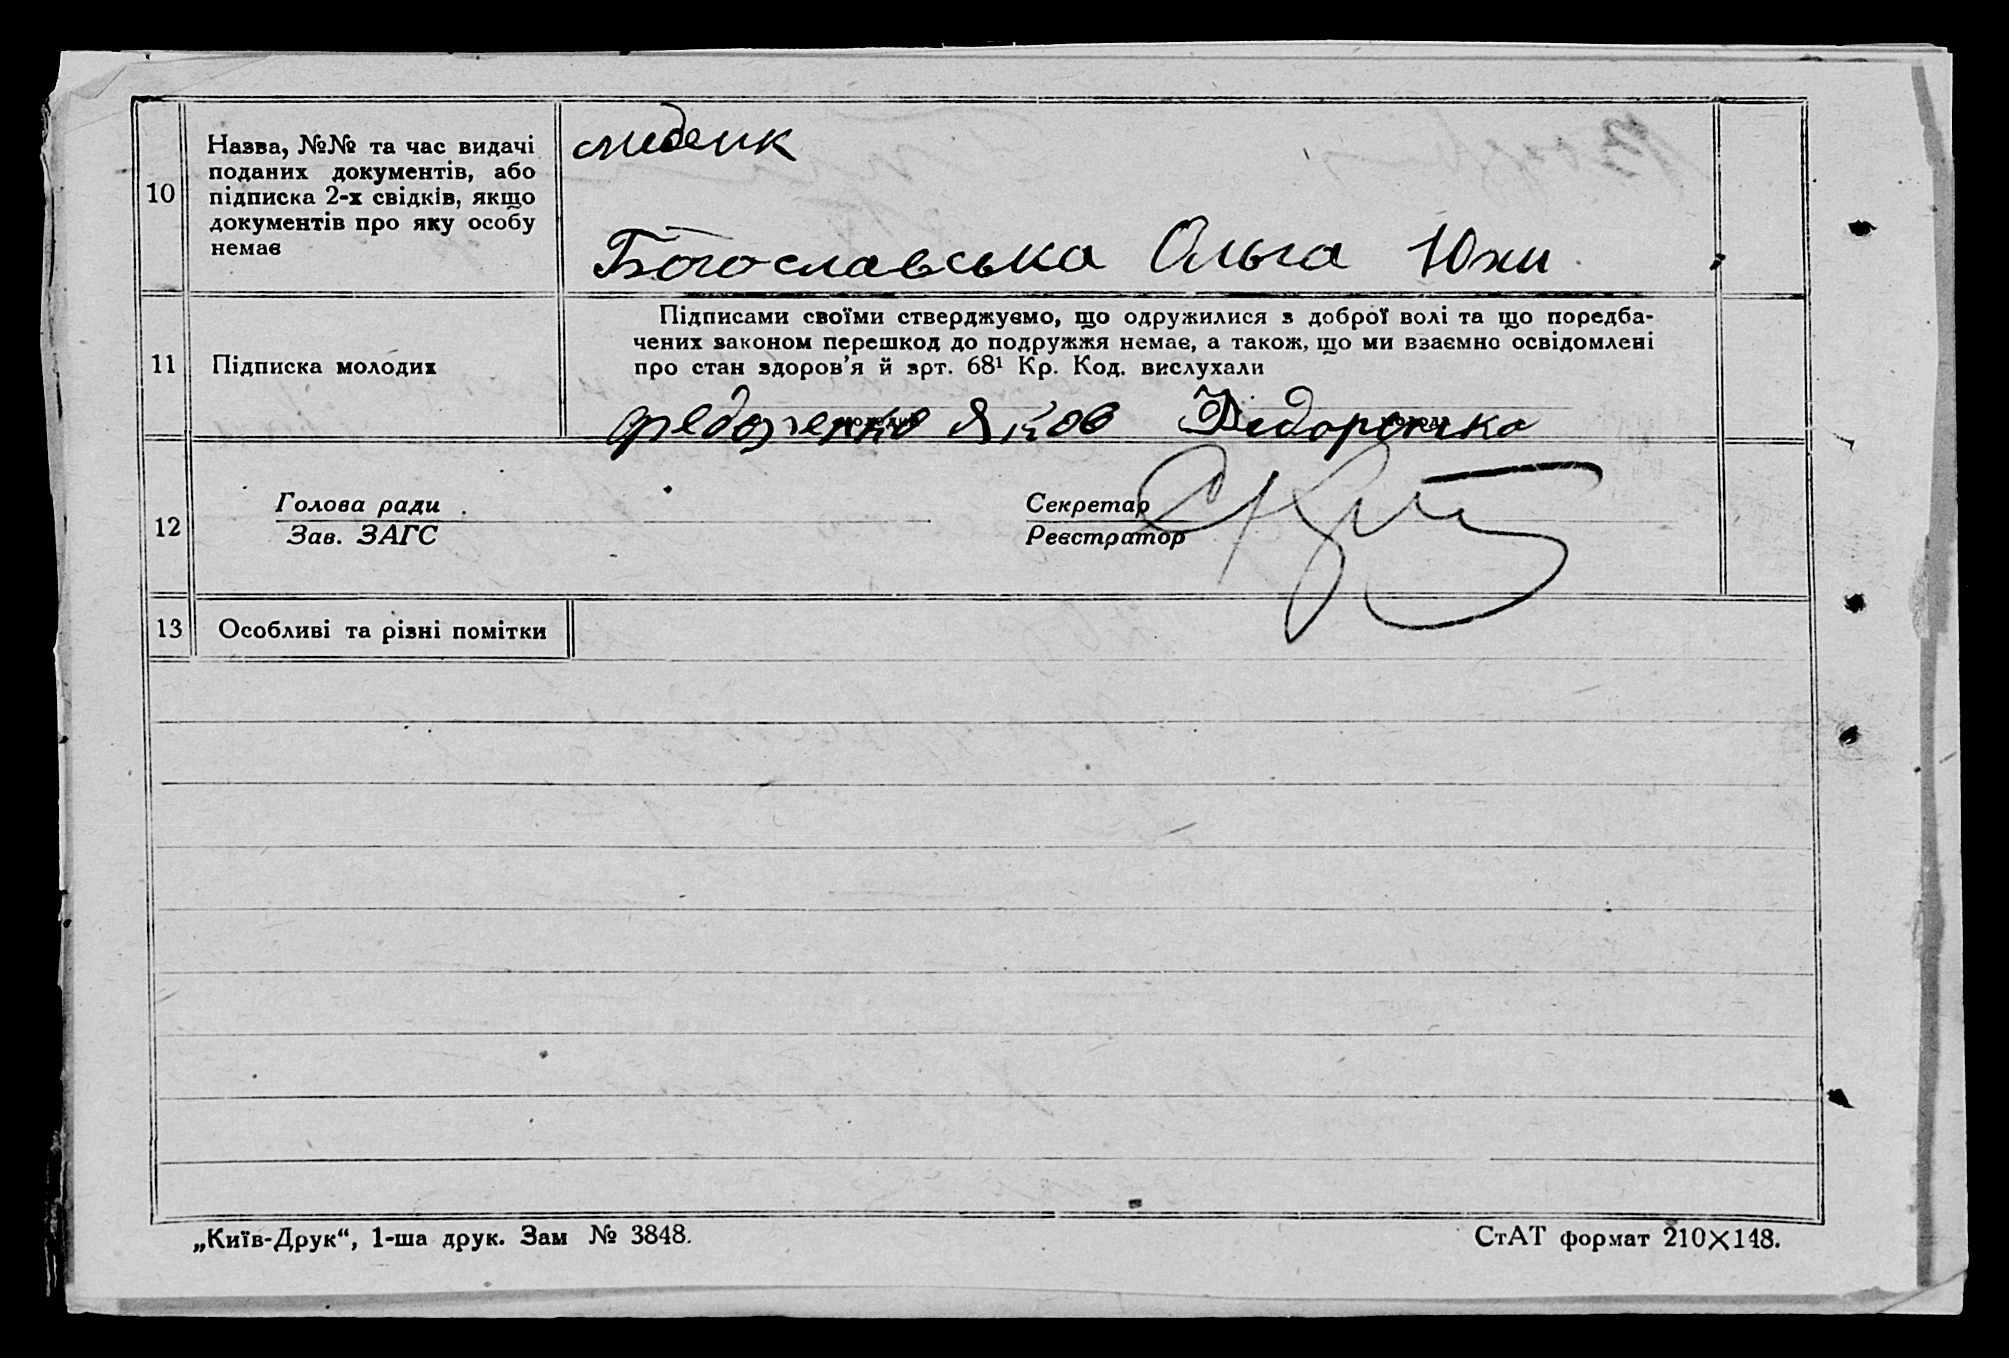 10
Назва, №№ та час видачі
поданих документів, або
підписка 2-х свідків, якщо
документів про яку особу
немає
Богославська Ольга
11
Підписка молодих
Підписами своїми стверджуємо, що одружилися з доброї волі та що поредба-
чених законом перешкод до подружжя немає, а також, що ми взаємно освідомлені
про стан здоров’я й зрт. 68¹ Кр. Код. вислухали
Яков
12
Голова ради
Зав. ЗАГС
Секретар
Реєстратор
13
Особливі та різні помітки
„Київ-Друк“, 1-ша друк. Зам № 3848.
СтАТ формат 210×148.